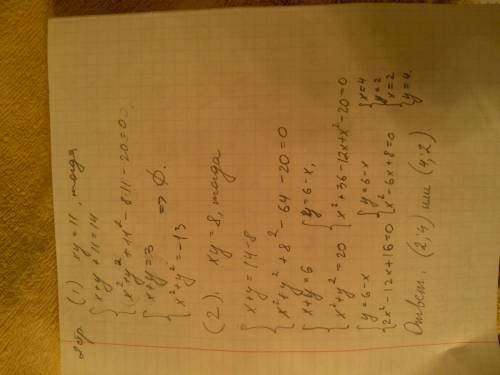 (1) xy = 11, тогда
{ x+y+11=14
x²+y²+11²-8·11-20=0,
{ x+y=3
x²+y²=-13 => ∅.
(2). xy=8, тогда
{ x+y=14-8
x²+y²+8²-64-20=0
{ x+y=6
x²+y²=20
{ y=6-x,
x²+36-12x+x²-20=0
{ y=6-x
2x²-12x+16=0
{ y=6-x
x²-6x+8=0
{ x=4
y=2
{ x=2
y=4.
Ответ: (2,4) или (4,2)